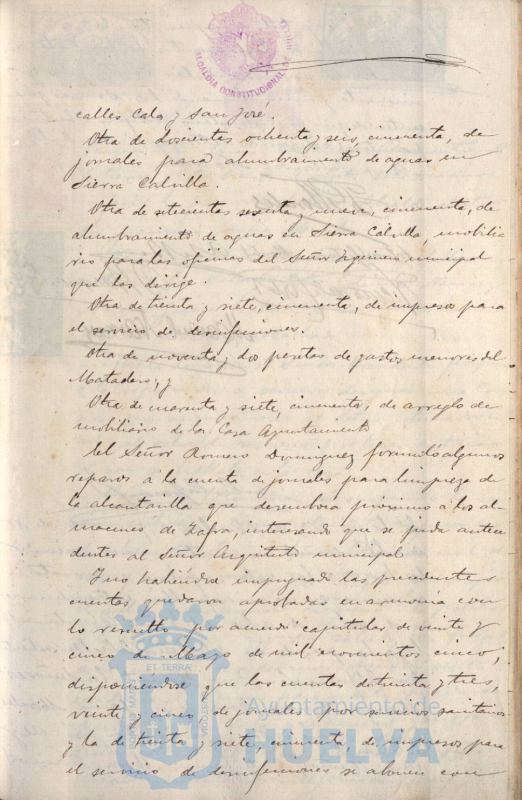 ALCALDIA CONSTITUCIONAL
calles Cala y San José.
Otra de doscientas ochenta y seis, cincuenta, de
jornales para alumbramiento de aguas en
Sierra Calvilla.
Otra de setecientas sesenta y nueve, cincuenta, de
alumbramiento de aguas en Sierra Calvilla mobilia
rio para las oficinas del Señor Ingeniero municipal
que las dirige.
Otra de treinta y siete, cincuenta, de impresos para
el servicio de desinfecciones.
Otra de noventa y dos pesetas de gastos menores del
Matadero, y
Otra de cuarenta y siete, cincuenta, de arreglo de
mobiliario de la Casa Ayuntamiento
El Señor Romero Dominguez formuló algunos
reparos á la cuenta de jornales para limpieza de
la alcantarilla que desemboca próximo á los al-
macenes de Zafra, interesando que se pida antece
dentes al Señor Arquitecto municipal
Y no habiéndose impugnado las precedentes
cuentas quedaron aprobadas en armonía con
lo resuelto por acuerdo capitular de veinte y
cinco de Mayo de mil novecientos cinco,
disponiéndose que las cuentas de treinta y tres,
veinte y cinco de jornales por servicios sanitarios
y la de treinta y siete, cincuenta, de impresos para
el servicio de desinfecciones se abonen con
ET TERRÆ
Ayuntamiento de
HUELVA